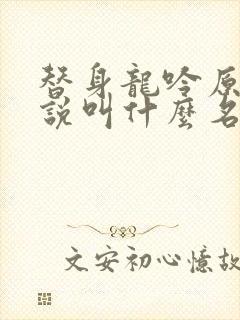 替身龍吟原
說叫什麼名
文安初心憶故